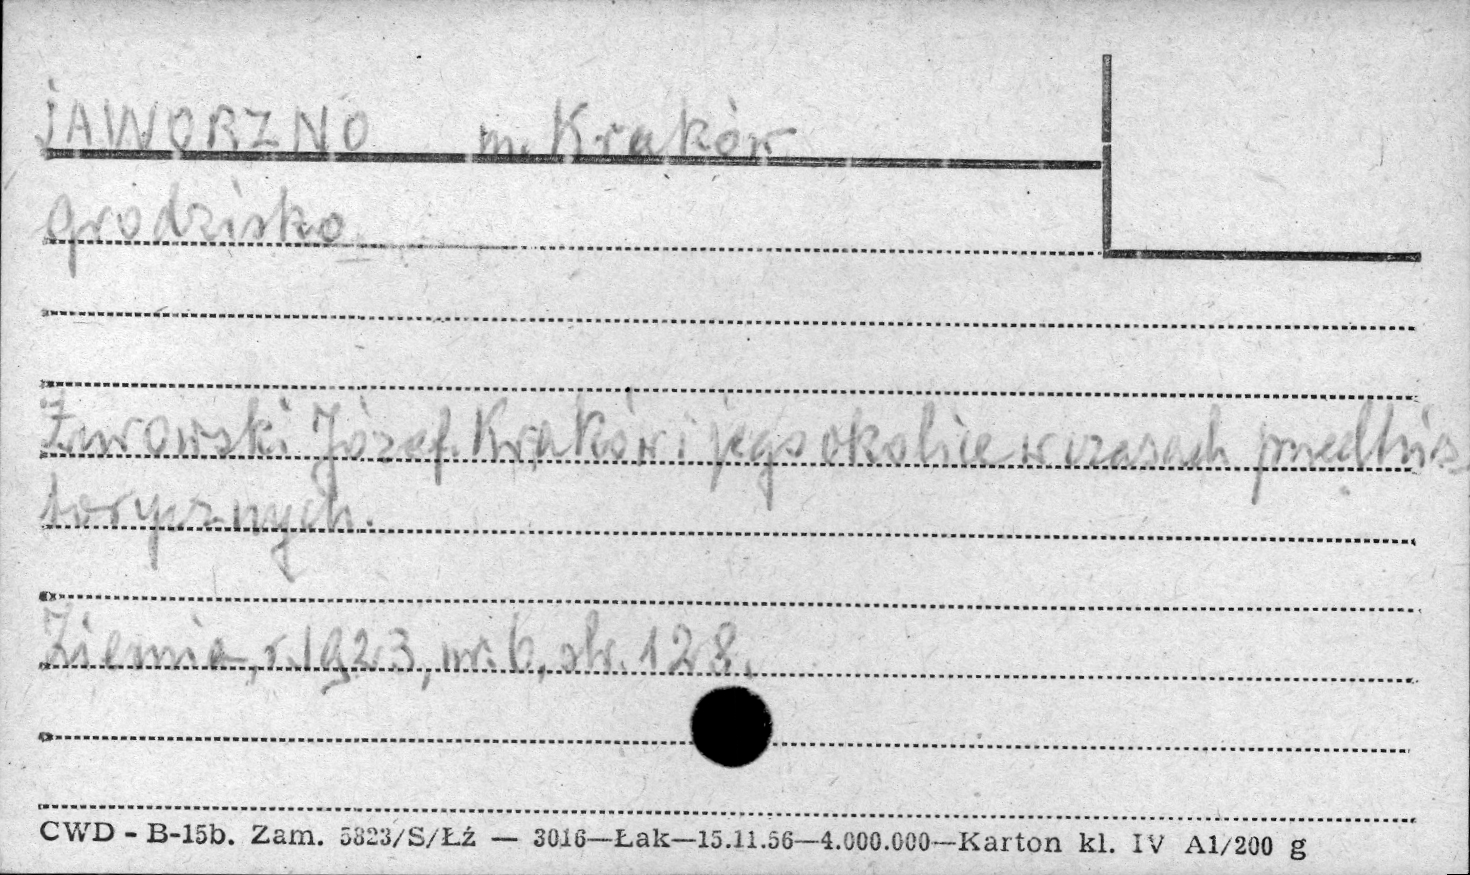 JAWORZNO m. Kraków
grodzisko
Żurowski Józef. Kraków i jego okolice w czasach przedhis-
torycznych.
Ziemia, r. 1923, nr. 6, str. 128.
CWD - B-15b. Zam. 5823/S/Łź — 3016—Łak—15.11.56—4.000.000—Karton kl. IV A1/200 g